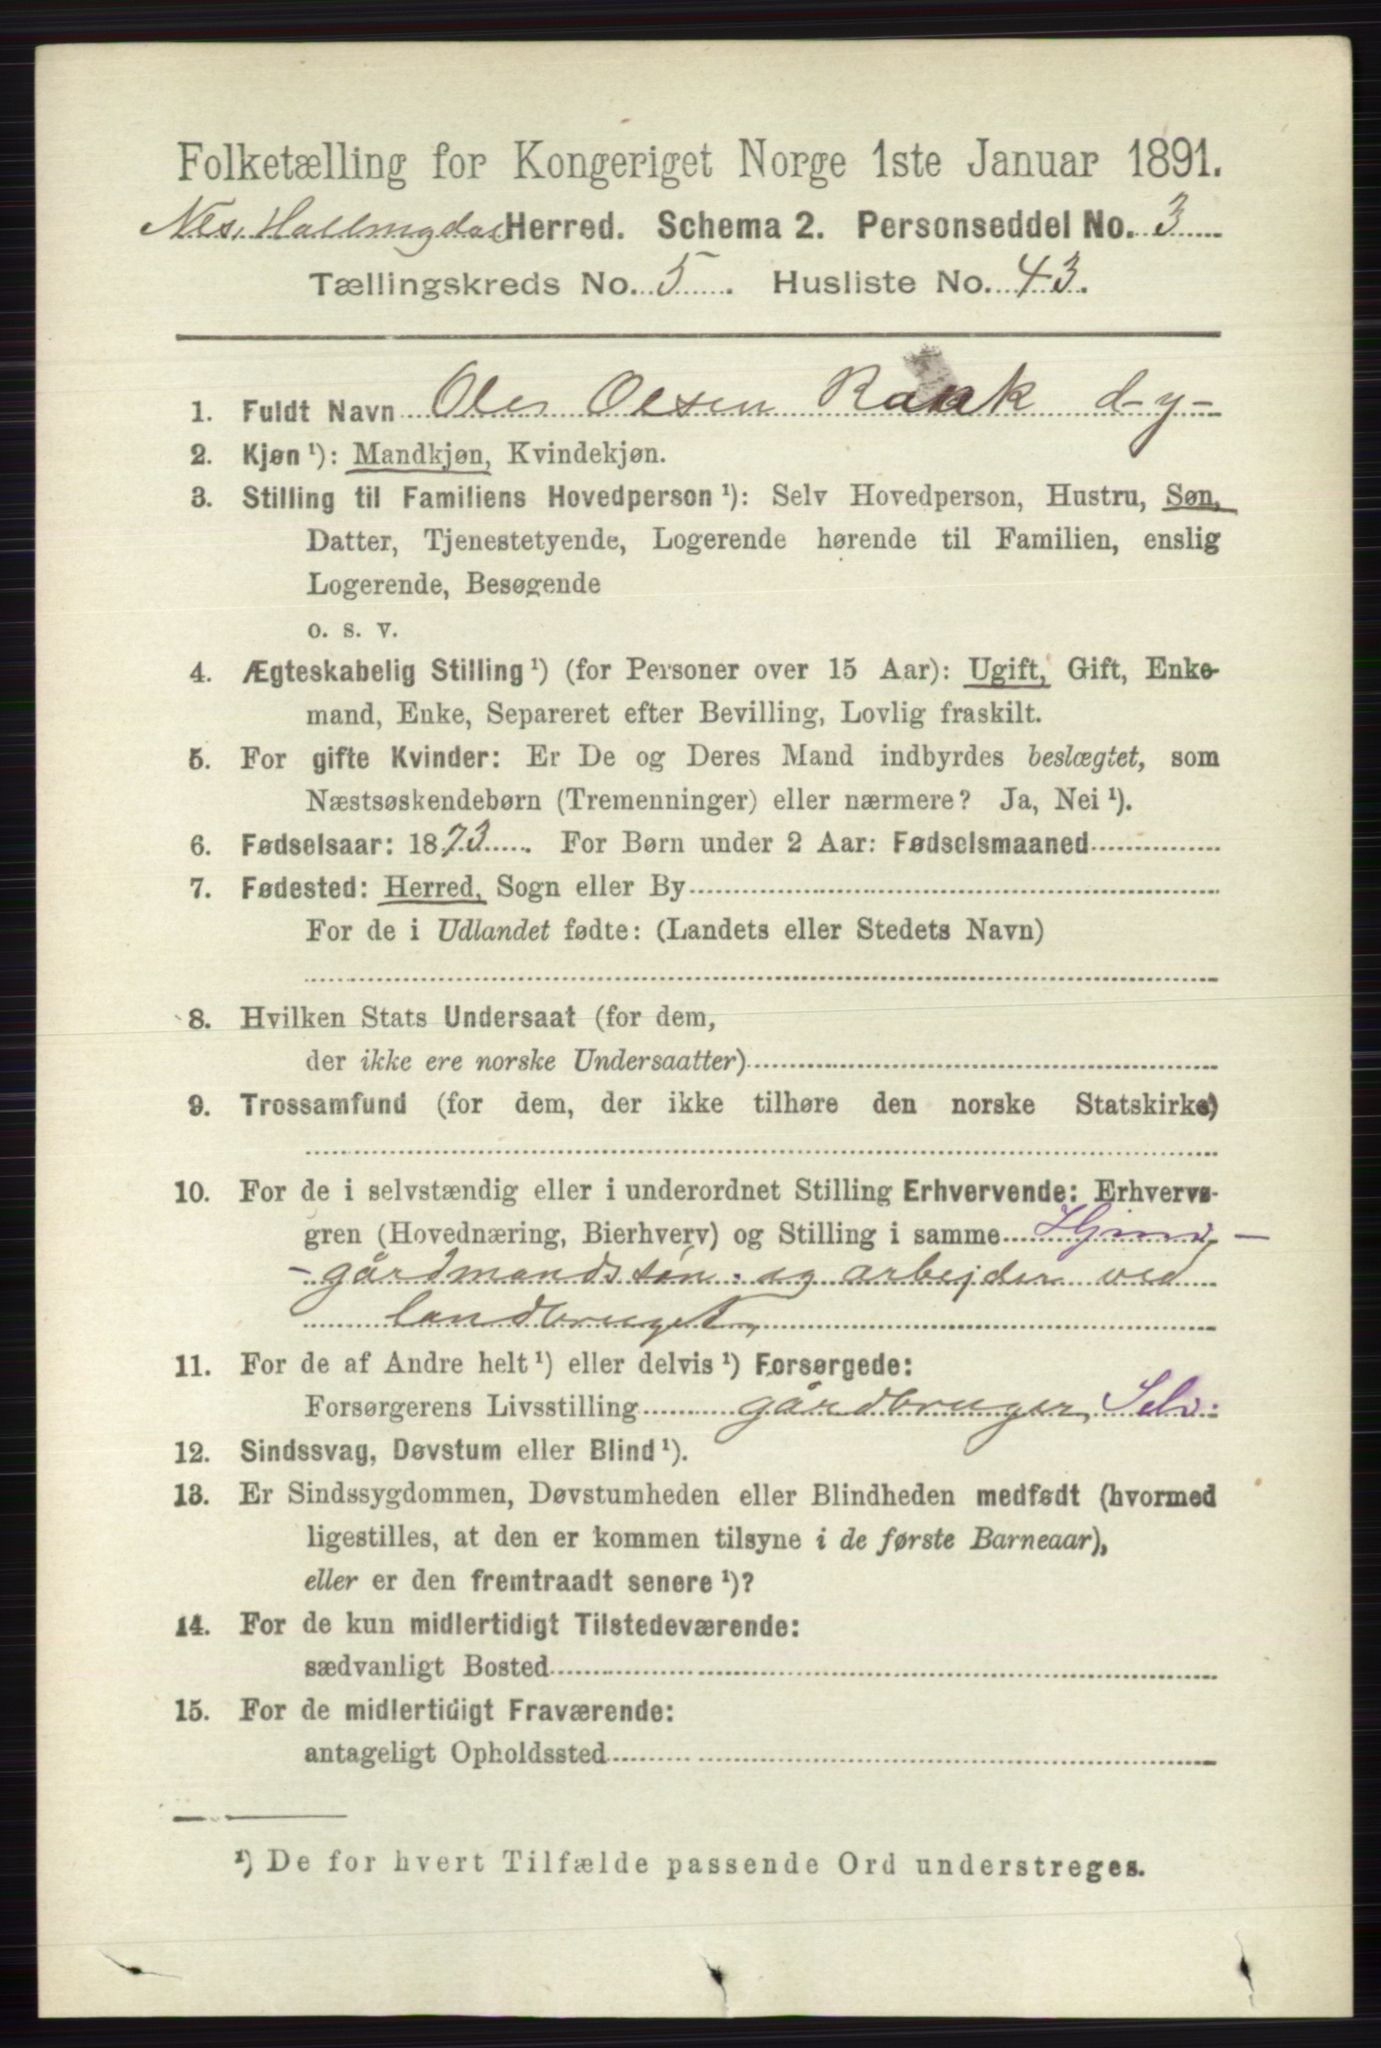 Folketælling for Kongeriget Norge 1ste Januar 1891.
Nes, Hallingdal Herred. Schema 2. Personseddel No. 3
Tællingskreds No. 5. Husliste No. 43.
1. Fuldt Navn Ole Olsen d-y-
2. Kjøn ¹): Mandkjøn, Kvindekjøn.
3. Stilling til Familiens Hovedperson ¹): Selv Hovedperson, Hustru, Søn,
Datter, Tjenestetyende, Logerende hørende til Familien, enslig
Logerende, Besøgende
o. s. v.
4. Ægteskabelig Stilling ¹) (for Personer over 15 Aar): Ugift, Gift, Enke-
mand, Enke, Separeret efter Bevilling, Lovlig fraskilt.
5. For gifte Kvinder: Er De og Deres Mand indbyrdes beslægtet, som
Næstsøskendebørn (Tremenninger) eller nærmere? Ja, Nei ¹).
6. Fødselsaar: 1873. For Børn under 2 Aar: Fødselsmaaned
7. Fødested: Herred, Sogn eller By
For de i Udlandet fødte: (Landets eller Stedets Navn)
8. Hvilken Stats Undersaat (for dem,
der ikke ere norske Undersaatter)
9. Trossamfund (for dem, der ikke tilhøre den norske Statskirke)
10. For de i selvstændig eller i underordnet Stilling Erhvervende: Erhvervs-
gren (Hovednæring, Bierhverv) og Stilling i samme
- gårdmandssøn. og arbejder ved
landbruget,
11. For de af Andre helt ¹) eller delvis ¹) Forsørgede:
Forsørgerens Livsstilling gårdbruger, Selv.
12. Sindssvag, Døvstum eller Blind ¹).
13. Er Sindssygdommen, Døvstumheden eller Blindheden medfødt (hvormed
ligestilles, at den er kommen tilsyne i de første Barneaar),
eller er den fremtraadt senere ¹)?
14. For de kun midlertidigt Tilstedeværende:
sædvanligt Bosted
15. For de midlertidigt Fraværende:
antageligt Opholdssted
¹) De for hvert Tilfælde passende Ord understreges.